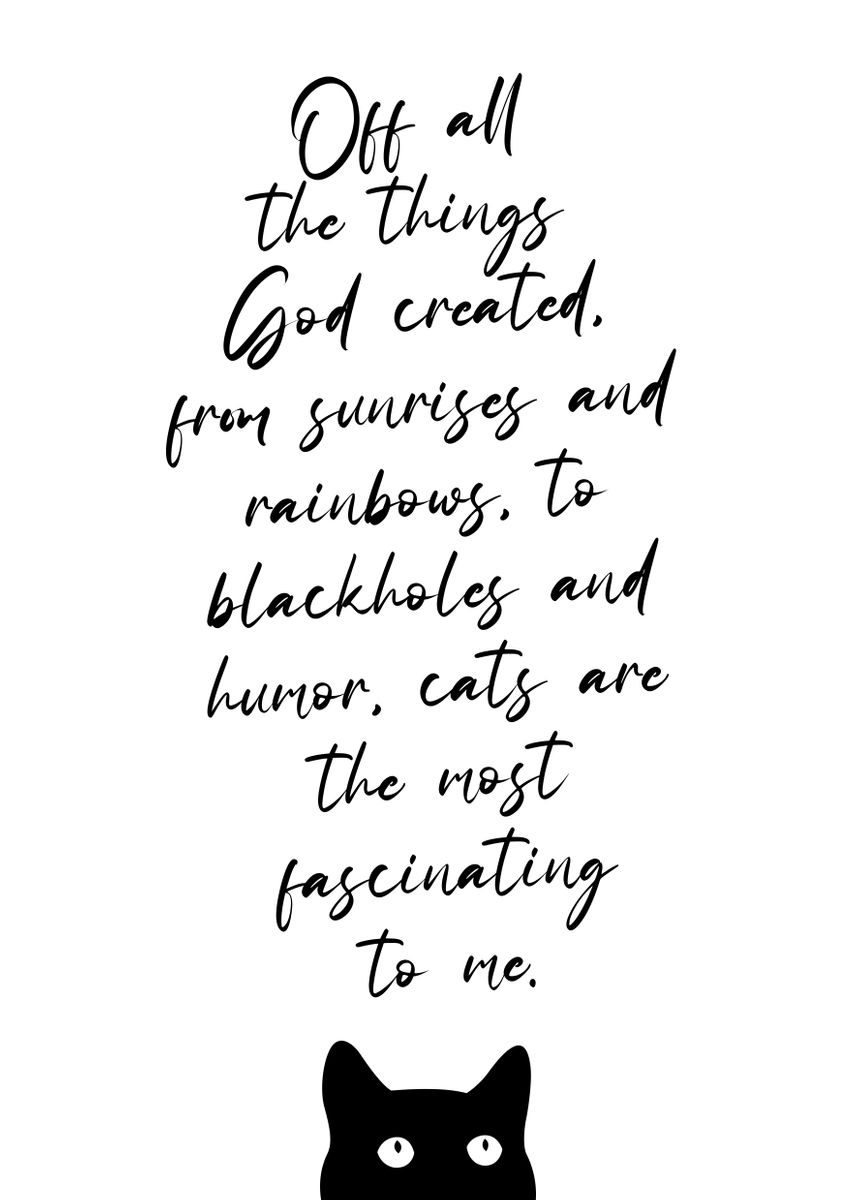 Off all
the things
God created,
from sunrises and
rainbows, to
blackholes and
humor, cats are
the most
fascinating
to me.